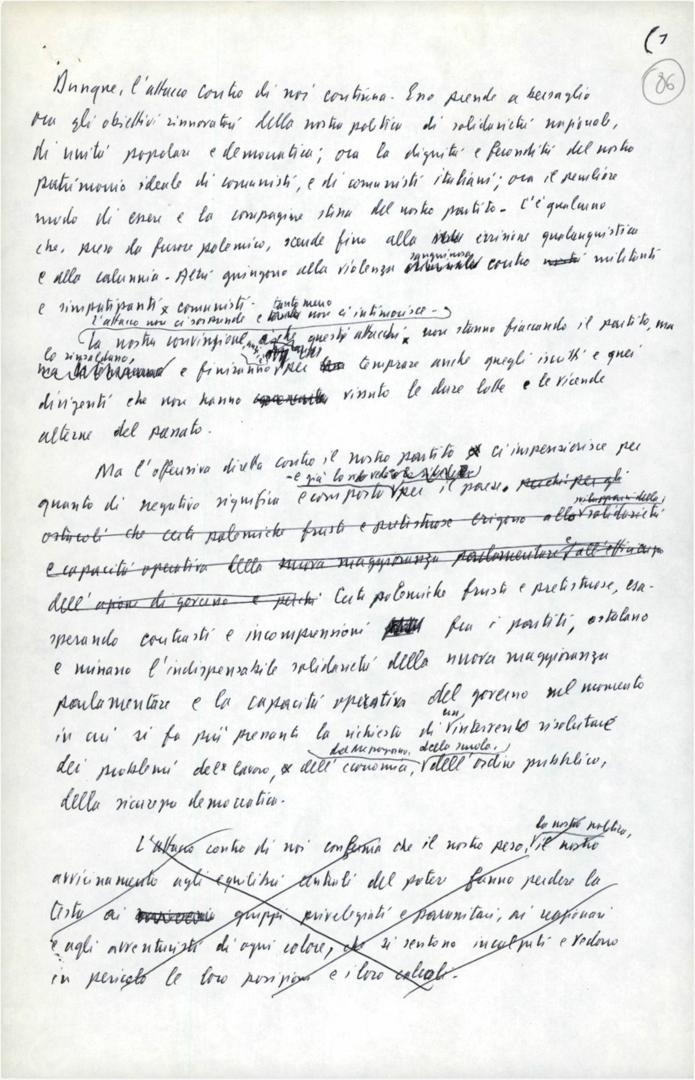 (7
86
Dunque, l'attacco contro di noi continua. Esso prende a bersaglio
ora gli obiettivi rinnovatori della nostra politica di solidarietà nazionale,
di unità popolare e democratica; ora la dignità e fecondità del nostro
patrimonio ideale di comunisti, e di comunisti italiani; ora il peculiare
modo di essere e la compagine stessa del nostro partito. C'è qualcuno
che, preso da furore polemico, scende fino alla irrisione qualunquistica
sanguinosa
e alla calunnia. Altri giungono alla violenza contro militanti
e simpatizzanti comunisti.
tanto meno
l'attacco non ci sorprende e non ci intimorisce.
La nostra convinzione è che questi attacchi non stanno fiaccando il partito, ma
lo rinsaldano,
e finiranno per temprare anche quegli iscritti e quei
dirigenti che non hanno vissuto le dure lotte e le vicende
alterne del passato.
Ma l'offensiva diretta contro il nostro partito ci impensierisce per
e già lo si vede
quanto di negativo significa e comporta per il paese. perché per gli
ostacoli che certe polemiche fruste e pretestuose erigono alla solidarietà
e capacità operativa della nuova maggioranza parlamentare e all'efficacia
dell'azione di governo e perché Certe polemiche fruste e pretestuose, esa-
sperando contrasti e incomprensioni fra i partiti, ostolano
e minano l'indispensabile solidarietà della nuova maggioranza
parlamentare e la capacità operativa del governo nel momento
un
in cui si fa più pressante la richiesta di intervento risolutore
del Mezzogiorno, della scuola,
dei problemi del lavoro, dell'economia, dell'ordine pubblico,
della sicurezza democratica.
la nostra politica,
L'attacco contro di noi conferma che il nostro peso, il nostro
avvicinamento agli equilibri centrali del potere fanno perdere la
testa ai gruppi privilegiati e parassitari, ai reazionari
e agli avventuristi di ogni colore, che si sentono inculpati e vedono
in pericolo le loro posizioni e i loro calcoli.